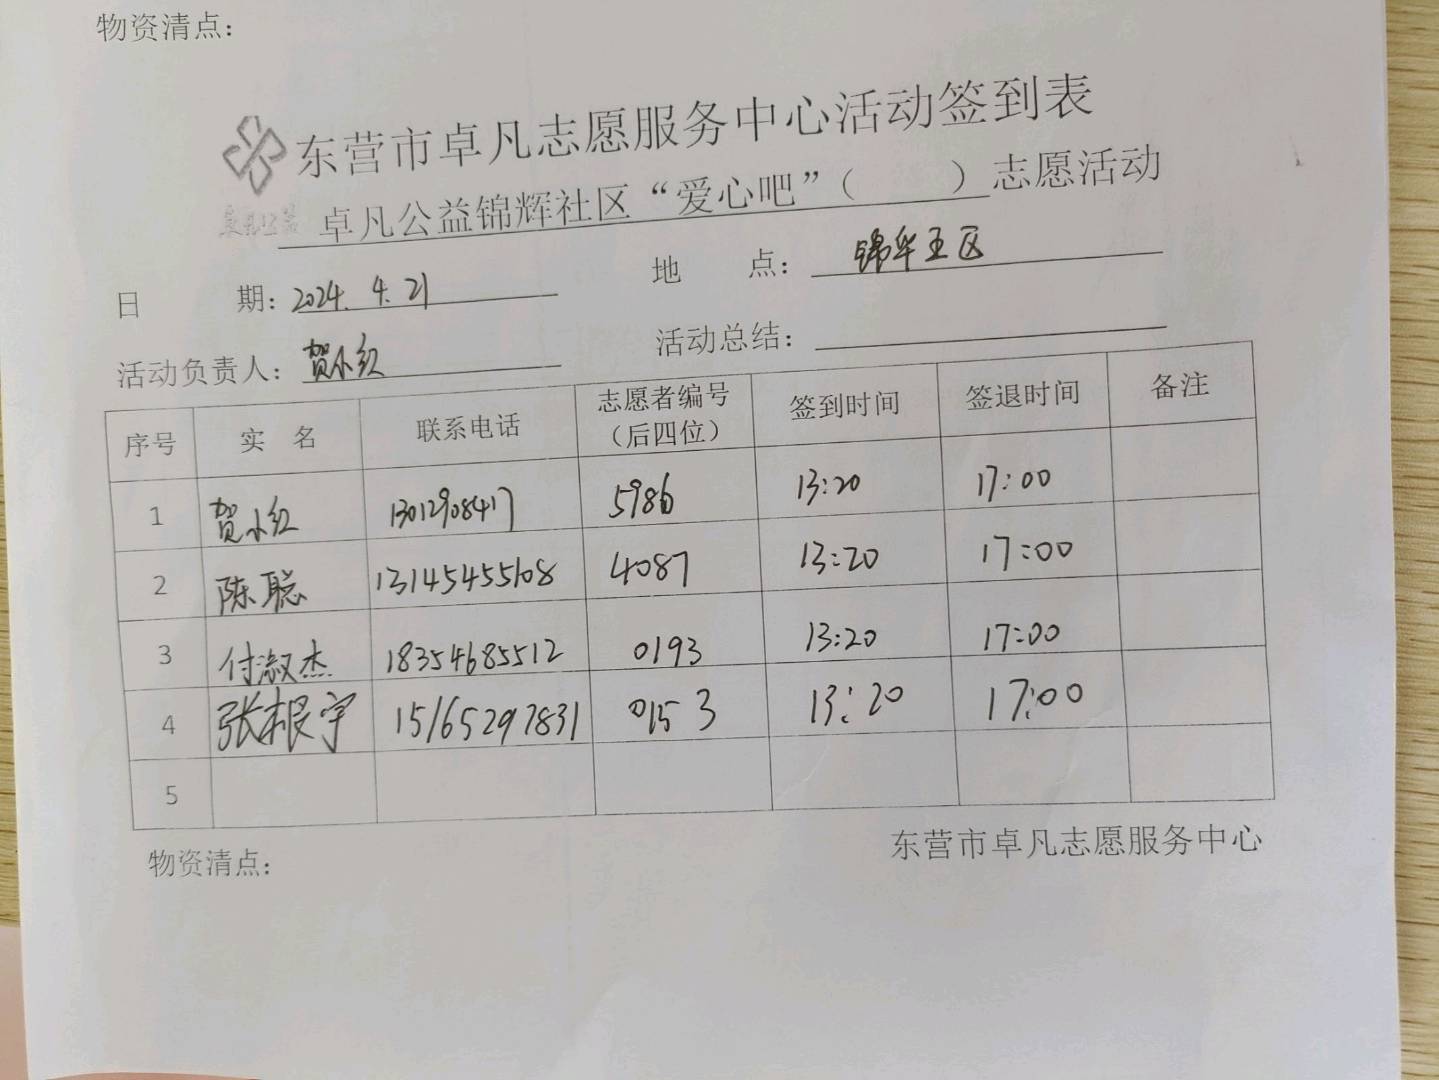 物资清点：
东营市卓凡志愿服务中心活动签到表
卓凡公益锦辉社区“爱心吧”（ ）志愿活动
日 期：2024.4.21 地 点：锦华五区
活动负责人：贺小红 活动总结：
序号 实 名 联系电话 志愿者编号（后四位） 签到时间 签退时间 备注
1 贺小红 13012908417 5986 13:20 17:00
2 陈聪 13145455108 4087 13:20 17:00
3 付淑杰 18354685512 0193 13:20 17:00
4 张根宇 15165297831 0153 13:20 17:00
5
物资清点： 东营市卓凡志愿服务中心